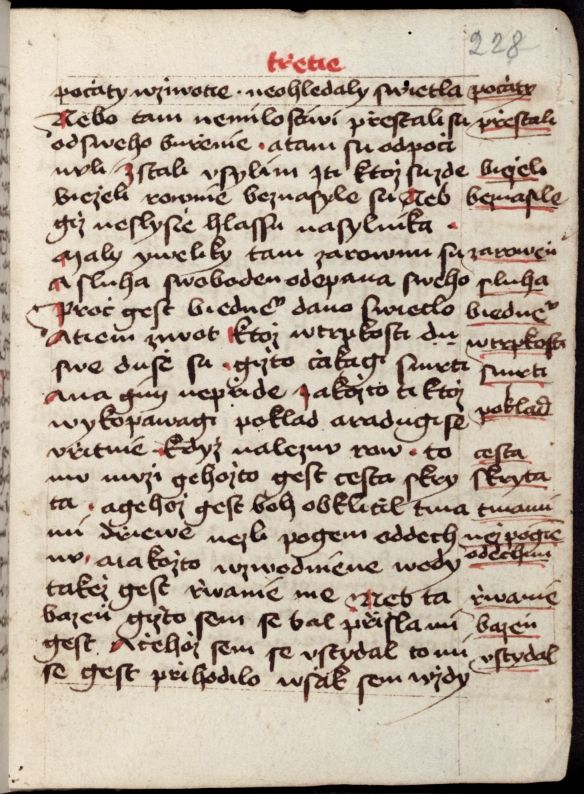 228
třetie
počaty wziwotie · neohledaly swietla počaty
Nebo tam nemilostiwi přestali su přestali
od sweho buřenie · a tam su odpoči
nuli zstali vsylim zti ktoz su zde biezeli
biezeli rownie beznasyle su Neb beznasile
giz neslysie hlassu nasylnika ·
Maly yweliky tam zarowni su zarowen
A sluha swoboden odepana sweho sluha
Proč gest biedne° dano swietlo biedne°
Atiem ziwot ktoz wtrpkosti du wtrpkosti
swe duse su · gizto čakagi smrti smrti
Ana gim nepřide Jakozto ti ktoz
wykopawagi poklad aradugi se poklad
vřitnie · kdyz naleznu row · to cesta
mu muzi gehozto gest cesta skry skryta
ta · agehoz gest boh obkličil tma tmami
mi Dřiewe nezli pogem oddech nez pogie
nu · Atakozto wzwodniene wody odechnu
takez gest řwanie me Neb ta řwanie
bazen gizto sem se bal přissla mi bazen
gest Ačehoz sem se vstydal to mi vstydal
se gest přihodilo wsak sem wzdy